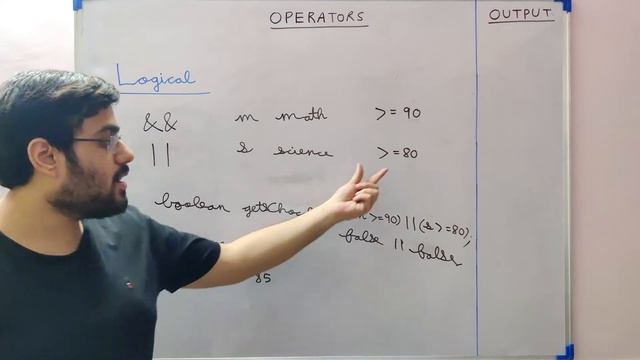 OPERATORS
OUTPUT
Logical
&& m math >= 90
|| s science >= 80
boolean >=90) || (s >= 80);
false || false
85